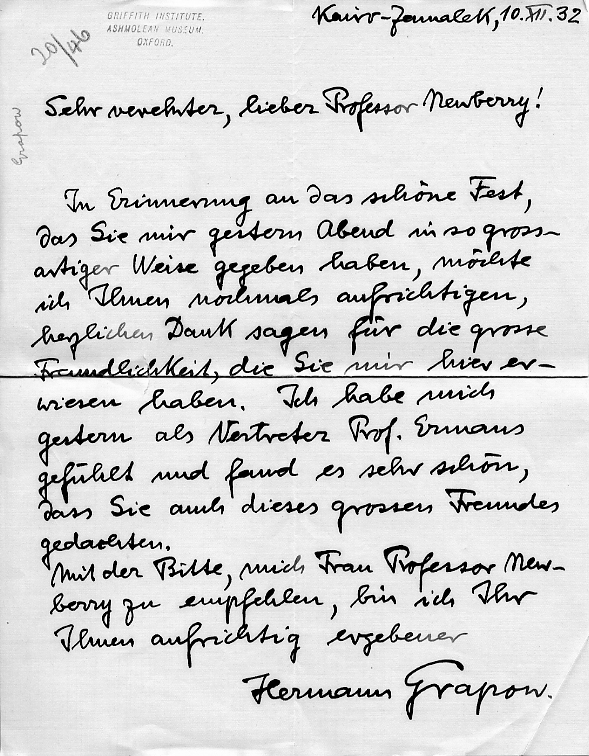 GRIFFITH INSTITUTE,
ASHMOLEAN MUSEUM,
OXFORD.
20/46
Grapow
Kairo-Zamalek, 10.XII.32
Sehr verehrter, lieber Professor Newberry!
In Erinnerung an das schöne Fest,
das Sie mir gestern Abend in so gross-
artiger Weise gegeben haben, möchte
ich Ihnen nochmals aufrichtigen,
herzlichen Dank sagen für die grosse
Freundlichkeit, die Sie mir hier er-
wiesen haben. Ich habe mich
gestern als Vertreter Prof. Ermans
gefühlt und fand es sehr schön,
dass Sie auch dieses grossen Freundes
gedachten.
Mit der Bitte, mich Frau Professor New-
berry zu empfehlen, bin ich Ihr
Ihnen aufrichtig ergebener
Hermann Grapow.